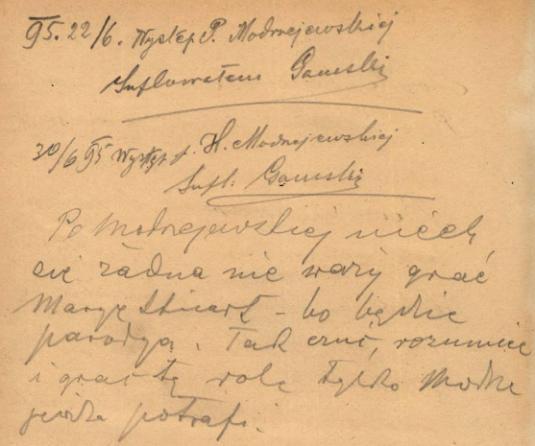 95. 22/6. Występ P. Modrzejewskiej
Suflowałem Gawski
30/6 95 Występ p. H. Modrzejewskiej
Sufl:
Po Modrzejewskiej niech
się żadna nie waży grać
Maryę Stuart – bo będzie
parodyą. Tak czuć, rozumieć
i grać tę rolę tylko Modrze
jewska potrafi.